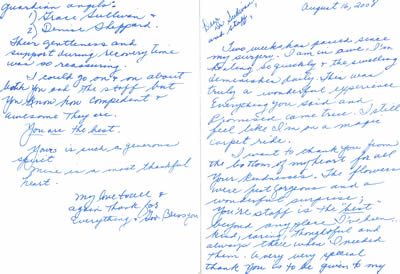 August 16, 2008
Dear
Dr.
and staff,
Two weeks has passed since
my surgery. I am in awe. I'm
healing so quickly & the swelling
diminishes daily. This was
truly a wonderful experience
Everything you said and
promised came true. I still
feel like I'm on a magic
carpet ride.
I want to thank you from
the bottom of my heart for all
your kindnesses. The flowers
were just gorgeous and a
wonderful surprise;
you're staff is the "best"
beyond any place I've been.
kind, caring, thoughtful and
always there when I needed
them. A very very special
thank you is to be given to my
guardian angels:
1) Grace Sullivan &
2) Denise Sheppard.
Their gentleness and
support during recovery time
was so reassuring.
I could go on & on about
both you and the staff but
you know how competent &
awesome they are.
You are the best.
Yours is such a generous
spirit
mine is a most thankful
heart.
My love to all &
again thanks for
everything & God Bless you